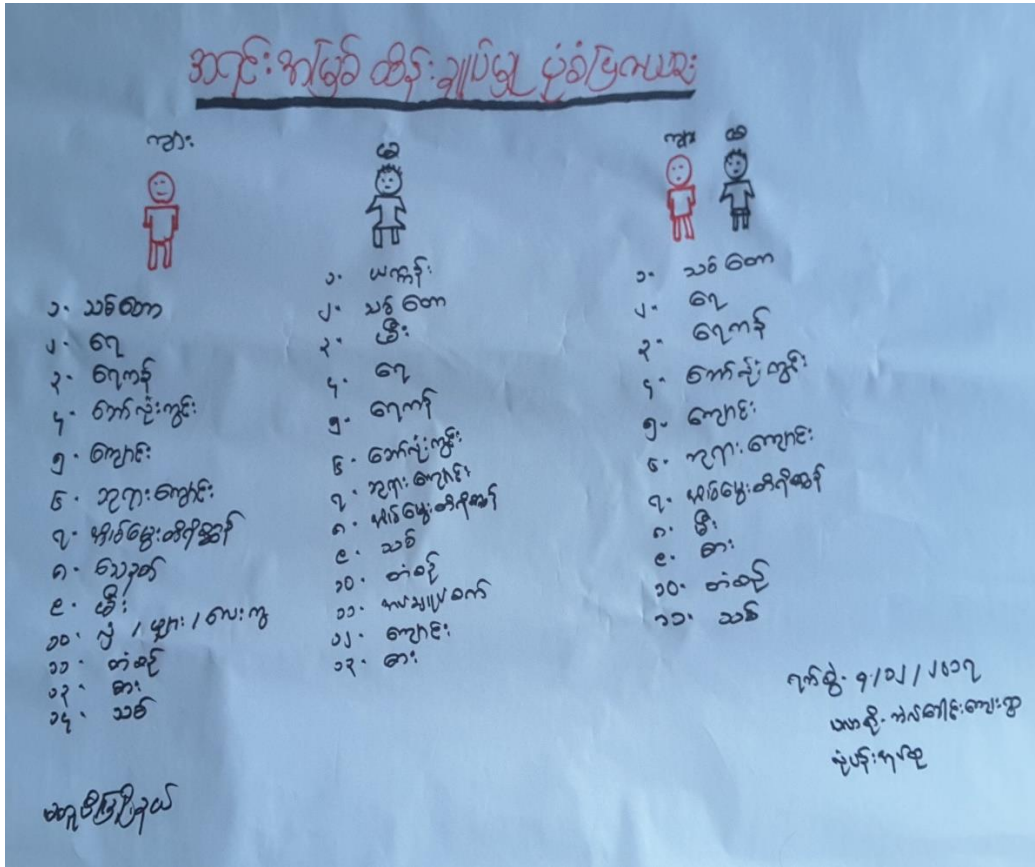 အရင်းအမြစ် ထိန်းချုပ်မှု ပုံစံပြကားချပ်
ကျား
၁။ သစ်တော
၂။ ရေ
၃။ ရေကန်
၄။ ဘော်လုံးကွင်း
၅။ ကျောင်း
၆။ ဘုရားကျောင်း
၇။ အိမ်မွေးတိရိစ္ဆာန်
၈။ သေနတ်
၉။ မီး
၁၀။ လှံ / မြှား / လေးကွ
၁၁။ တံစဉ်
၁၃။ ဓား
၁၄။ သစ်
မ
၁။ ယက္ကန်း
၂။ သစ်တော
၃။ မီး
၄။ ရေ
၅။ ရေကန်
၆။ ဘော်လုံးကွင်း
၇။ ဘုရားကျောင်း
၈။ အိမ်မွေးတိရိစ္ဆာန်
၉။ သစ်
၁၀။ တံစဉ်
၁၁။ အပ်ချုပ်စက်
၁၂။ ကျောင်း
၁၃။ ဓား
ကျား မ
၁။ သစ်တော
၂။ ရေ
၃။ ရေကန်
၄။ ဘော်လုံးကွင်း
၅။ ကျောင်း
၆။ ဘုရားကျောင်း
၇။ အိမ်မွေးတိရိစ္ဆာန်
၈။ မီး
၉။ ဓား
၁၀။ တံစဉ်
၁၁။ သစ်
ရက်စွဲ။ ၇/၁၂/၂၀၁၇